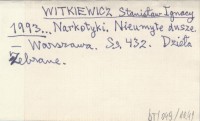 WITKIEWICZ Stanisław Ignacy
1993... Narkotyki. Niemyte dusze.
— Warszawa. Ss. 432. Dzieła
Zebrane.